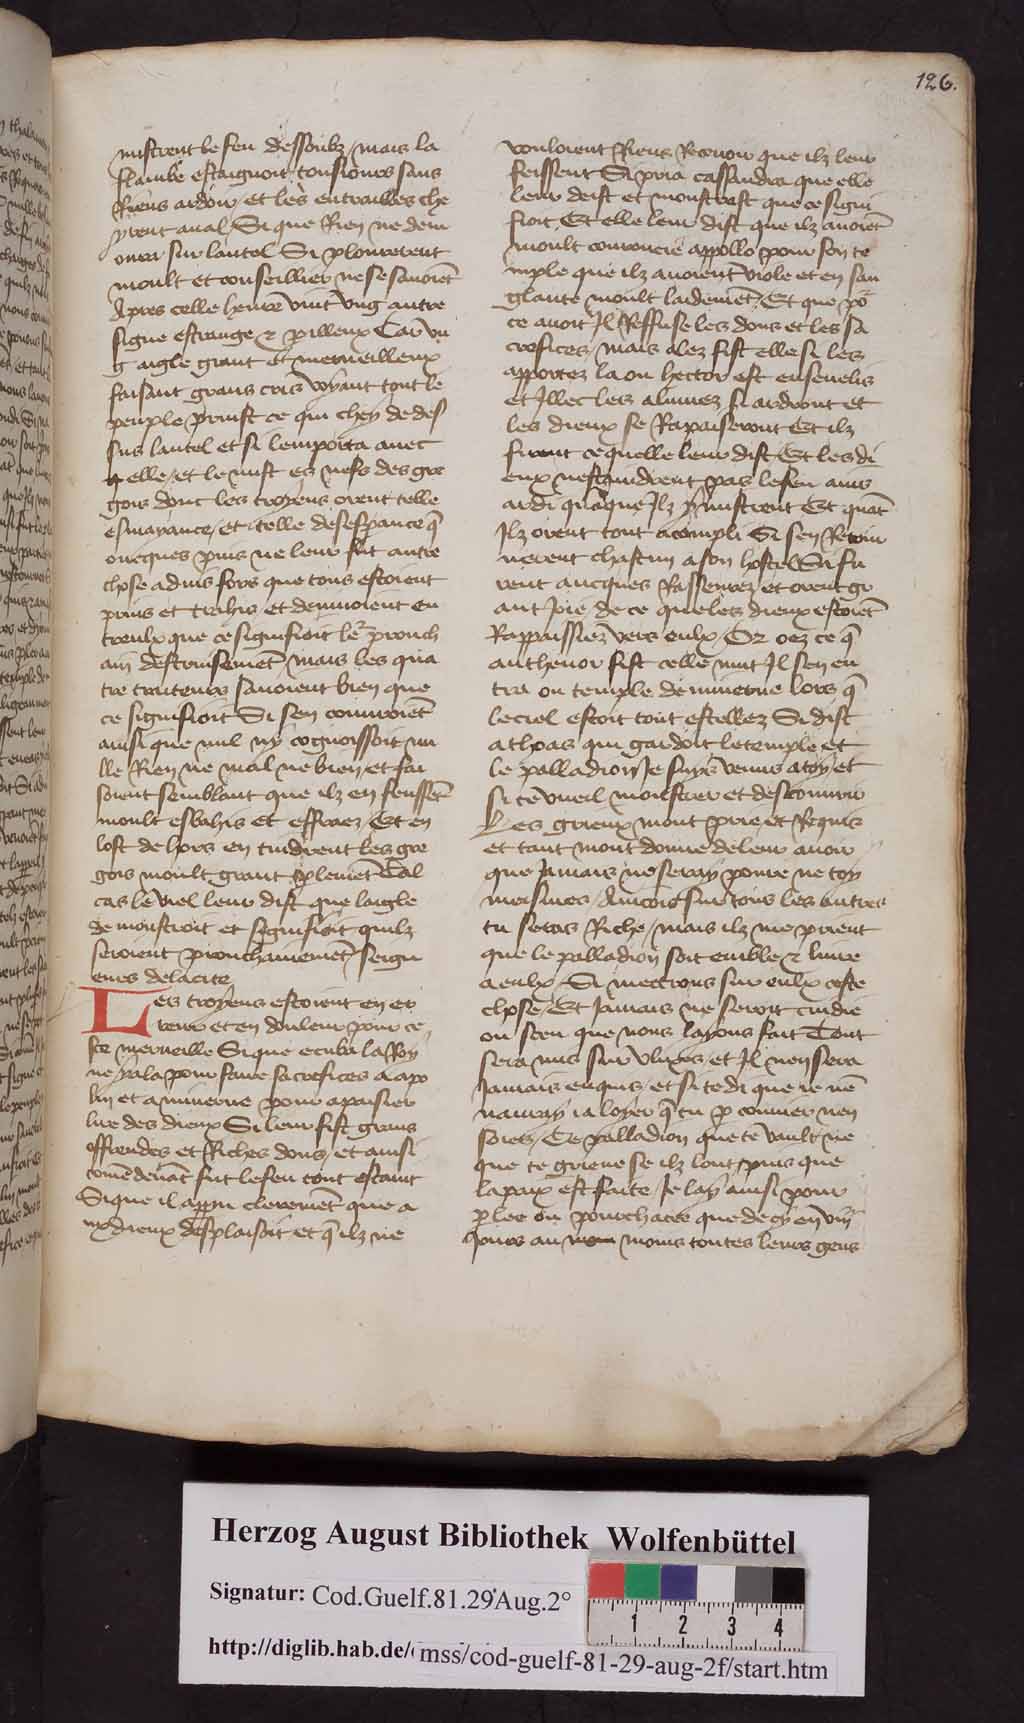 126.
mistrent le feu dessoubz / mais la
flambe estaignoit tousiours sans
Riens ardoir / et les entrailles che
yrent aval / Si que Rien ne dem
oura sur lautel Si plourerent
moult et conseillier ne se savoiēt
Apres celle heure vint vng autre
signe estrange & perilleux Car vn
g aigle grant et merueilleux
faisant grans cris voyant tout le
peuple prinst ce qui chey de des
sus lautel et si lemporta auec
elle / et le mist es nefs des gre
gois dont les troyens orent telle
esmayance / et telle desesperance q̄
oncques puis ne leur fut autre
chose aduis fors que tous estoient
prins et trahis et denuioient en
treulx que ce signifioit le prouch
ain destruisemēt mais les qua
tre traiteurs sauoient bien que
ce signifioit Si sen couuroiēt
ainsi que nul ny cognoissoit nu
lle Rien ne mal ne bien / et fai
soient semblant que ilz en feussēt
moult esbahis et effraez Et en
lost dehors en tindrent les gre
gois moult grant plemēt Cal
cas le viel leur dist que laigle
demonstroit et signifioit quilz
seroient prouchainemēt seign
eurs de la cite
Les troyens estoient en er
reur et en douleur pour ce
ste merueille Si que ecuba la Roy
ne y ala pour faire sacrefices a apo
lin et a minerue pour apaisier
lire des dieux Si leur fist grans
offrendes et Riches dons / et ainsi
comē deuāt fut le feu tout estaint
Si que il apperu cleremēt que a
ux dieux desplaisoit et q̄ ilz ne
vouloient Riens Receuoir que ilz leur
feissent Si pria cassandra que elle
leur deist et monstrast que ce signi
fioit Et elle leur dist que ilz auoiēt
moult courroucie appollo pour son te
mple que ilz auoient viole et en san
glante moult laidemēt / Et que po
ce auoit Il Reffuse les dons et les sa
crefices / mais alez fist elle si les
apportez la ou hector est enseuelis
et Illec les alumez si ardront et
les dieux se Rapaiseront Et ilz
firent ce quelle leur dist Et les di
eux nestaindrent pas le feu ains
ardi quāque Ilz y mistrent Et quāt
Ilz orent tout acompli Si sen Retour
nerent chascun a son hostel Si fu
rent aucques Rasseurez et orent gr
ant Ioie de ce que les dieux estoiēt
Rappaissiez vers eulx / Or oez ce q̄
anthenor fist celle nuit Il sen en
tra ou temple de minerue lors q̄
le ciel estoit tout estellez Si dist
a thoas qui gardoit le temple et
le palladion Je suys venus a toy et
si te vueil monstrer et descouurir
Les grieux mont prie et Requis
et tant mont donne de leur auoir
que Jamais ne seray poure ne toy
meismes / Aincois sur tous les autres
tu seras Riche / mais ilz me prient
que le palladion soit emble & liure
a eulx / Si mectrons sur eulx ceste
chose / Et Jamais ne seroit cuidie
ou sceu que nous layons fait Tout
sera mis sur vlixes et Il nen sera
Jamais enquis / et si te di que ie nē
nauray ia loyer q̄ tu per conuier nen
soies / Ce palladion que te vault ne
que te grieue se ilz lont puis que
la paix est faite / Je lay ainsi pour
p lee ou pourchacee que de cy en viij
Jours au moins toutes leurs gens
Herzog August Bibliothek Wolfenbüttel
Signatur: Cod.Guelf.81.29 Aug.2°
1 2 3 4
http://diglib.hab.de/ mss/cod-guelf-81-29-aug-2f/start.htm